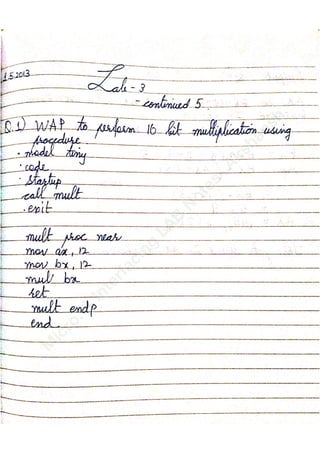 1.5.2013
Lab - 3
- continued 5
Q.1) WAP to perform 16 bit multiplication using
procedure.
. model tiny
. code
. startup
call mult
.exit
mult proc near
mov ax, 12
mov bx, 12
mul bx
ret
mult endp
end